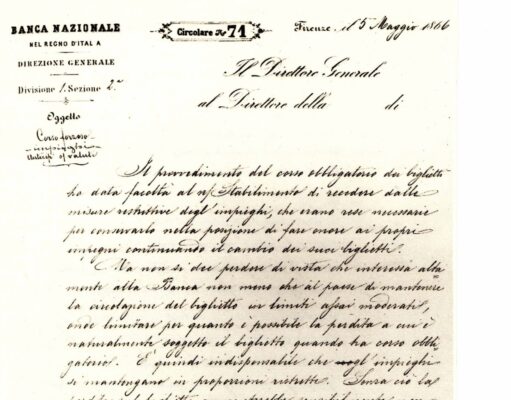 BANCA NAZIONALE
NEL REGNO D'ITAL A
DIREZIONE GENERALE
Divisione 1. Sezione 2.a
Oggetto
Corso forzoso
impieghi
Circolare No 71
Firenze, il 5 Maggio 1866
Il Direttore Generale
al Direttore della di
Il provvedimento del corso obbligatorio dei biglietti
ha data facoltà al ns/ Stabilimento di recedere dalle
misure restrittive degl' impieghi, che erano rese necessarie
per conservarlo nella posizione di fare onore ai propri
impegni continuando il cambio dei suoi biglietti.
Ma non si dee perdere di vista che interessa alta
mente alla Banca non meno che al paese di mantenere
la circolazione del biglietto in limiti assai moderati,
onde limitare per quanto è possibile la perdita a cui è
naturalmente soggetto il biglietto quando ha corso obbli
gatorio. È quindi indispensabile che gl' impieghi
si mantengano in proporzioni ristrette. Senza ciò la